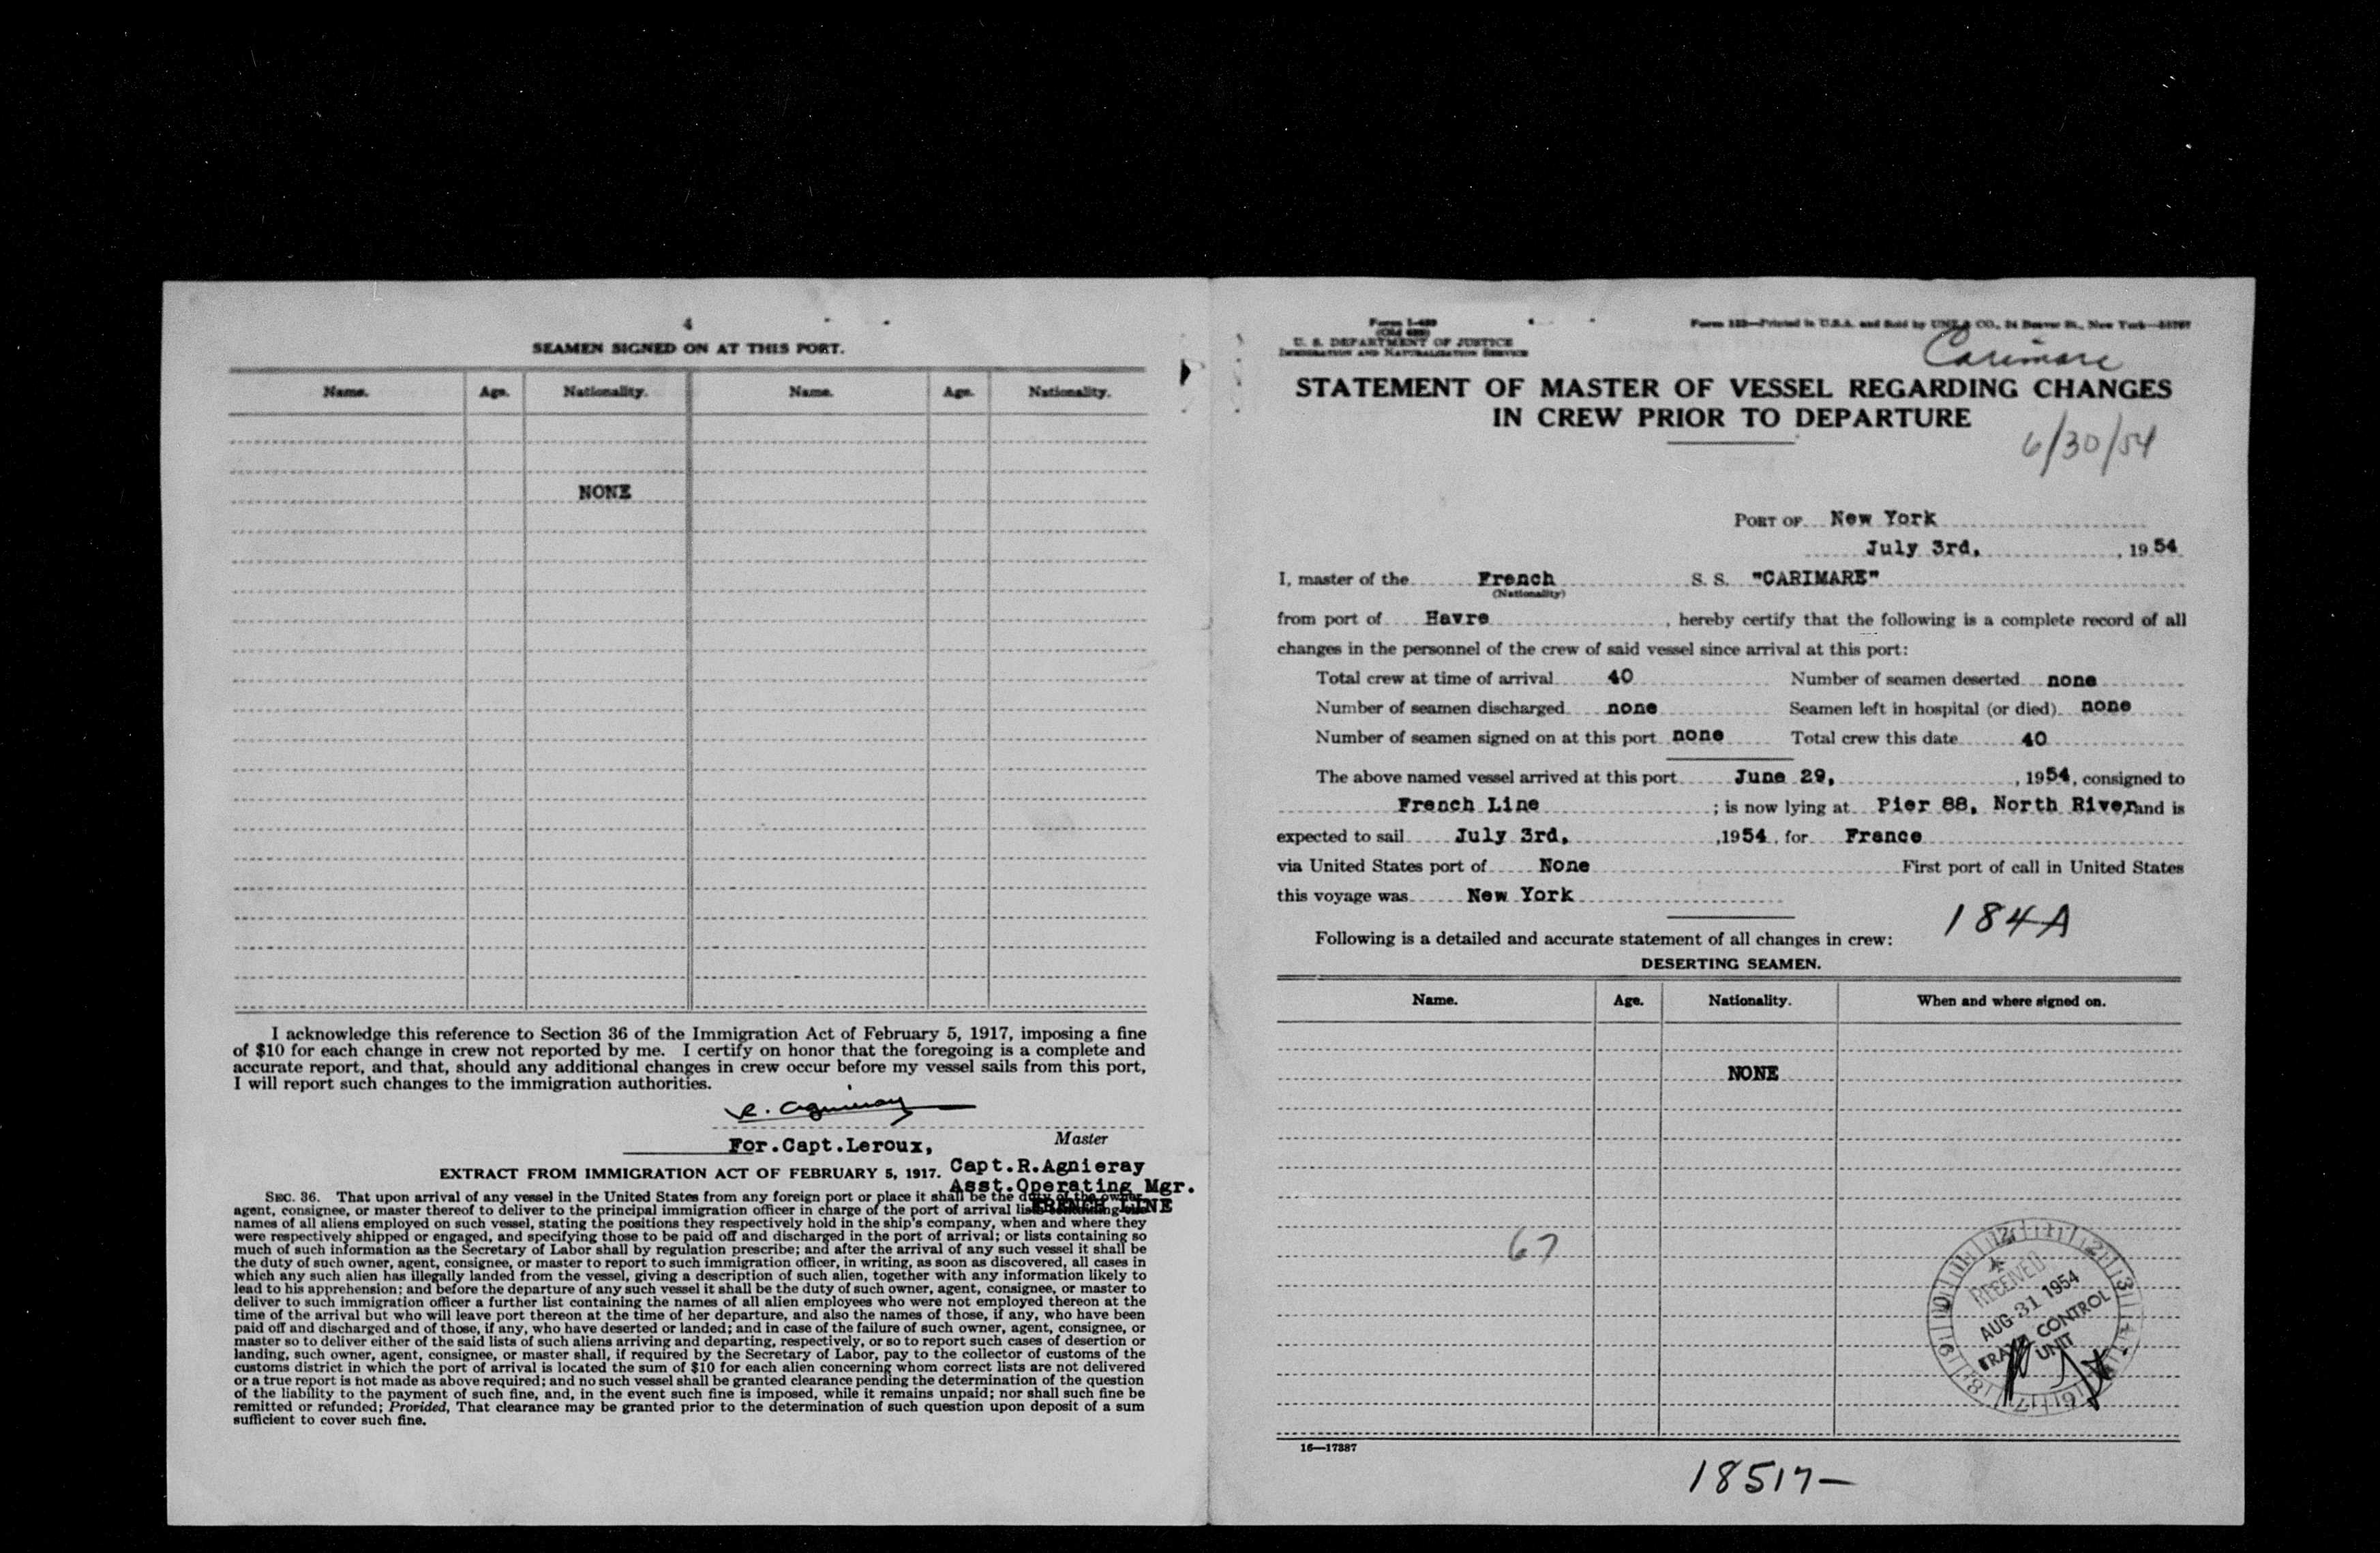 4
SEAMEN SIGNED ON AT THIS PORT.
Name. Age. Nationality. Name. Age. Nationality.
NONE
I acknowledge this reference to Section 36 of the Immigration Act of February 5, 1917, imposing a fine
of $10 for each change in crew not reported by me. I certify on honor that the foregoing is a complete and
accurate report, and that, should any additional changes in crew occur before my vessel sails from this port,
I will report such changes to the immigration authorities.
R. Agnieray
For.Capt.Leroux, Master
EXTRACT FROM IMMIGRATION ACT OF FEBRUARY 5, 1917. Capt.R.Agnieray
Asst.Operating Mgr.
FRENCH LINE
SEC. 36. That upon arrival of any vessel in the United States from any foreign port or place it shall be the duty of the owner,
agent, consignee, or master thereof to deliver to the principal immigration officer in charge of the port of arrival lists containing the
names of all aliens employed on such vessel, stating the positions they respectively hold in the ship's company, when and where they
were respectively shipped or engaged, and specifying those to be paid off and discharged in the port of arrival; or lists containing so
much of such information as the Secretary of Labor shall by regulation prescribe; and after the arrival of any such vessel it shall be
the duty of such owner, agent, consignee, or master to report to such immigration officer, in writing, as soon as discovered, all cases in
which any such alien has illegally landed from the vessel, giving a description of such alien, together with any information likely to
lead to his apprehension; and before the departure of any such vessel it shall be the duty of such owner, agent, consignee, or master to
deliver to such immigration officer a further list containing the names of all alien employees who were not employed thereon at the
time of the arrival but who will leave port thereon at the time of her departure, and also the names of those, if any, who have been
paid off and discharged and of those, if any, who have deserted or landed; and in case of the failure of such owner, agent, consignee, or
master so to deliver either of the said lists of such aliens arriving and departing, respectively, or so to report such cases of desertion or
landing, such owner, agent, consignee, or master shall, if required by the Secretary of Labor, pay to the collector of customs of the
customs district in which the port of arrival is located the sum of $10 for each alien concerning whom correct lists are not delivered
or a true report is not made as above required; and no such vessel shall be granted clearance pending the determination of the question
of the liability to the payment of such fine, and, in the event such fine is imposed, while it remains unpaid; nor shall such fine be
remitted or refunded; Provided, That clearance may be granted prior to the determination of such question upon deposit of a sum
sufficient to cover such fine.
U. S. DEPARTMENT OF JUSTICE
IMMIGRATION AND NATURALIZATION SERVICE
Form 122—Printed in U.S.A. and Sold by UNZ & CO., 24 Beaver St., New York
Carimare
STATEMENT OF MASTER OF VESSEL REGARDING CHANGES
IN CREW PRIOR TO DEPARTURE
6/30/54
PORT OF New York
July 3rd, , 19 54
I, master of the French S. S. "CARIMARE"
(Nationality)
from port of Havre , hereby certify that the following is a complete record of all
changes in the personnel of the crew of said vessel since arrival at this port:
Total crew at time of arrival 40 Number of seamen deserted none
Number of seamen discharged none Seamen left in hospital (or died) none
Number of seamen signed on at this port none Total crew this date 40
The above named vessel arrived at this port June 29, , 1954, consigned to
French Line ; is now lying at Pier 88, North River, and is
expected to sail July 3rd, ,1954 , for France
via United States port of None First port of call in United States
this voyage was New York
184A
Following is a detailed and accurate statement of all changes in crew:
DESERTING SEAMEN.
Name. Age. Nationality. When and where signed on.
NONE
67
RECEIVED
AUG 31 1954
TRAVEL CONTROL
UNIT
16—17387
18517-